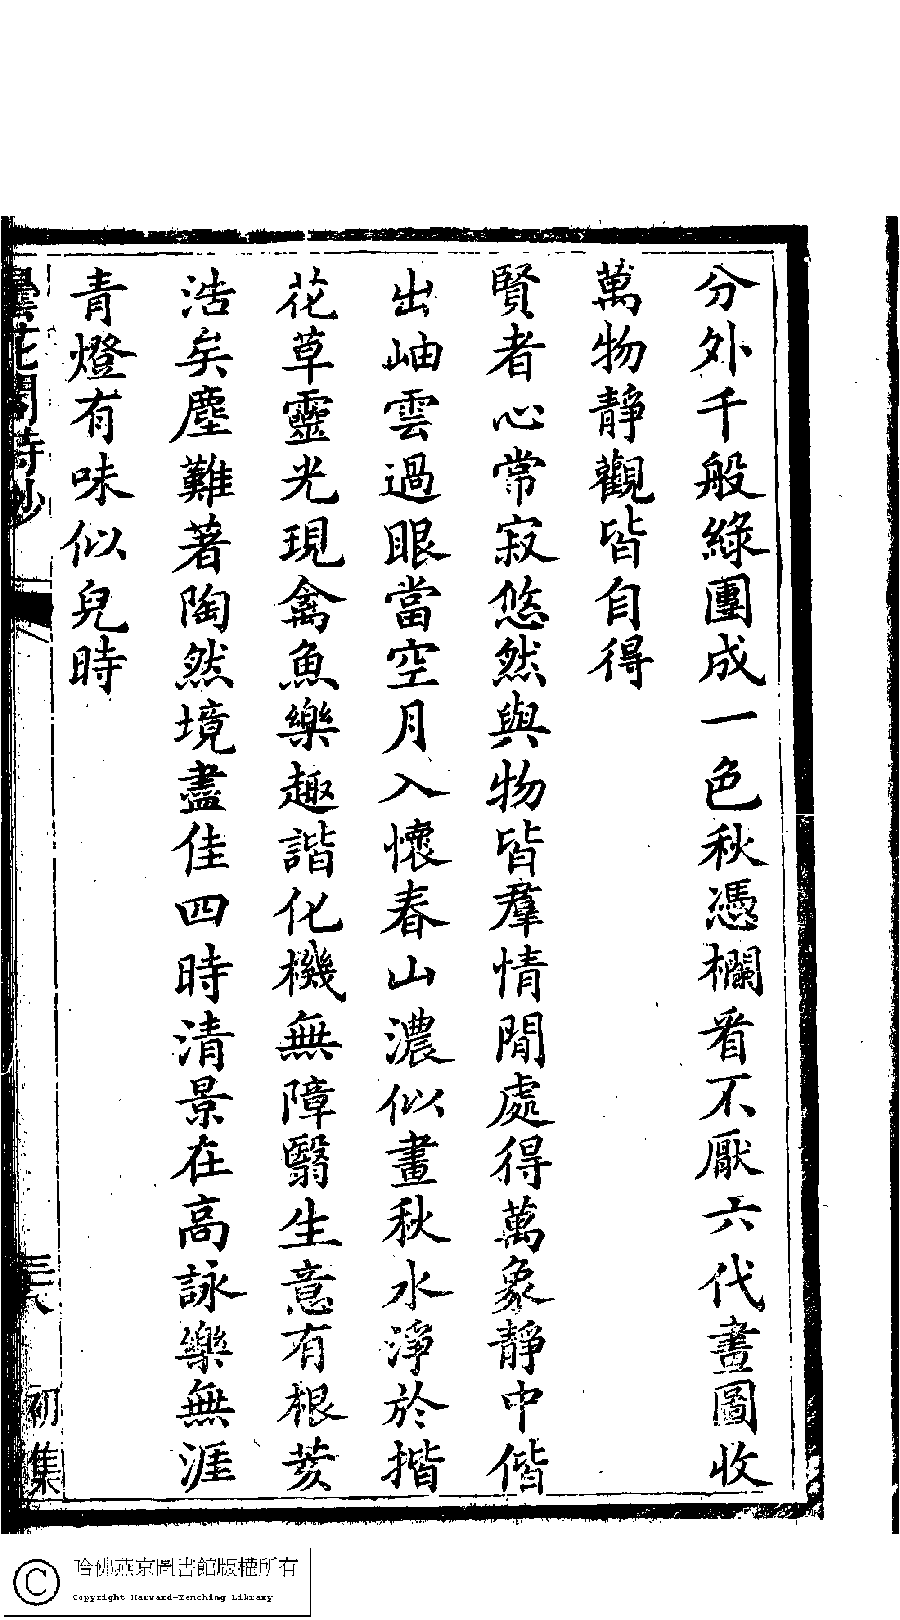 分外千般綠團成一色秋憑欄看不厭六代畫圖收
萬物靜觀皆自得
賢者心常寂悠然與物皆羣情閒處得萬象靜中偕
出岫雲過眼當空月入懷春山濃似畫秋水淨於揩
花草靈光現禽魚樂趣諧化機無障翳生意有根荄
浩矣塵難著陶然境盡佳四時清景在高詠樂無涯
青燈有味似兒時
曇花閣詩鈔
三八
初集
哈佛燕京圖書館版權所有
Copyright Harvard-Yenching Library